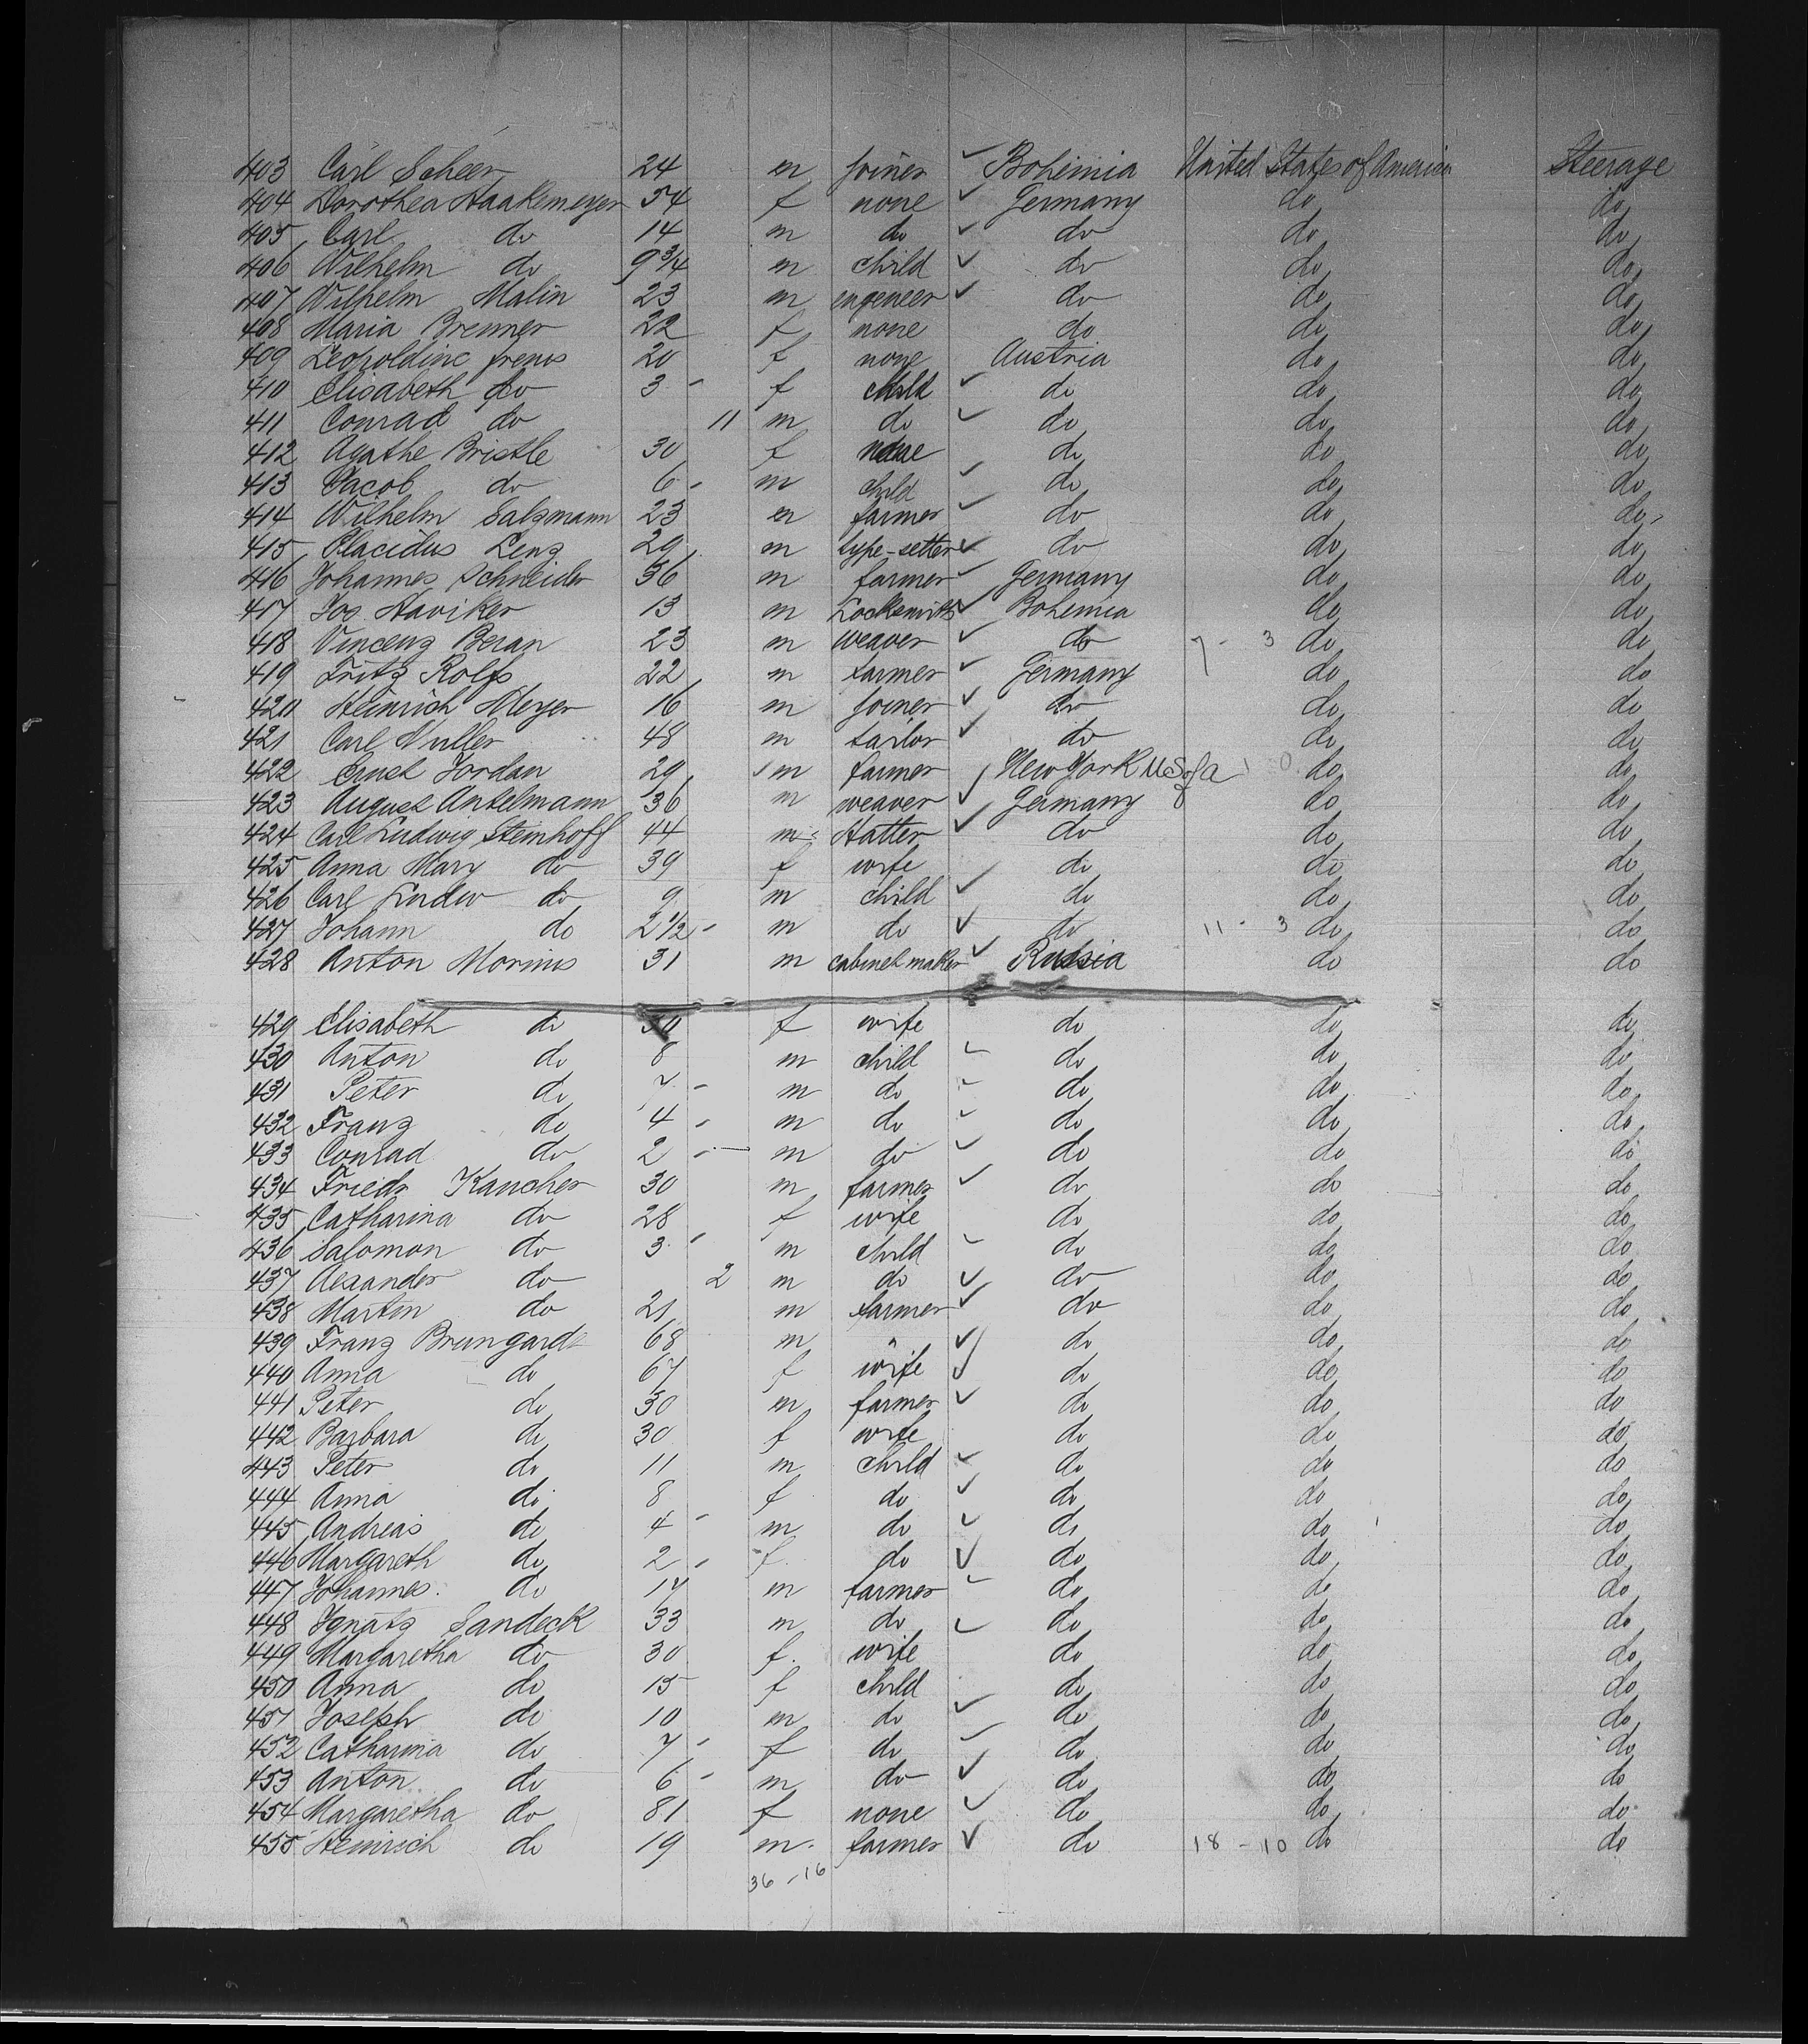 403 Carl Scheer 24 m joiner ✓ Bohemia United States of America Steerage
404 Dorothea Haakemeyer 54 f none ✓ Germany do do
405 Carl do 14 m do ✓ do do do
406 Wilhelm do 9 3/4 m child ✓ do do do
407 Wilhelm Malin 23 m engeneer ✓ do do do
408 Maria Brenner 22 f none do do do
409 Leopoldine 20 f none Austria do do
410 Elisabeth do 3 - f child ✓ do do do
411 Conrad do 11 m do ✓ do do do
412 Agathe Bristle 30 f none do do do
413 Jacob do 6 - m child ✓ do do do
414 Wilhelm Salzmann 23 m farmer ✓ do do do
415 Placidus Lenz 29 m type-setter ✓ do do do
416 Johannes Schneider 36 m farmer ✓ Germany do do
417 Jos. Haviker 13 m Locksmith ✓ Bohemia do do
418 Vincenz Beran 23 m weaver ✓ do 7 - 3 do do
419 Fritz Rolfs 22 m farmer ✓ Germany do do
420 Heinrich Meyer 16 m joiner ✓ do do do
421 Carl Muller 48 m tailor ✓ do do do
422 Ernst Jordan 29 m farmer ✓ New York US of a 1 0 do do
423 August Antelmann 36 m weaver ✓ Germany do do
424 Carl Ludwig Steinhoff 44 m Hatter ✓ do do do
425 Anna Mary do 39 f wife do do do
426 Carl Ludw do 9 m child ✓ do do do
427 Johann do 2 1/2 - m do ✓ do 11 - 3 do do
428 Anton Morinis 31 m cabinet maker ✓ Russia do do
429 Elisabeth do 30 f wife do do do
430 Anton do 8 m child ✓ do do do
431 Peter do 7 - m do ✓ do do do
432 Franz do 4 - m do ✓ do do do
433 Conrad do 2 - m do ✓ do do do
434 Friedr Kaucher 30 m farmer ✓ do do do
435 Catharina do 28 f wife do do do
436 Salomon do 3 - m child ✓ do do do
437 Alexander do 2 m do ✓ do do do
438 Martin do 21 m farmer ✓ do do do
439 Franz Brungardt 68 m " ✓ do do do
440 Anna do 67 f wife ✓ do do do
441 Peter do 30 m farmer ✓ do do do
442 Barbara do 30 f wife do do do
443 Peter do 11 m child ✓ do do do
444 Anna do 8 f do ✓ do do do
445 Andreas do 4 - m do ✓ do do do
446 Margareth do 2 - f do ✓ do do do
447 Johannes do 17 m farmer ✓ do do do
448 Ignatz Sandeck 33 m do ✓ do do do
449 Margaretha do 30 f. wife do do do
450 Anna do 15 f child do do do
451 Joseph do 10 m do ✓ do do do
452 Catharina do 7 - f do ✓ do do do
453 Anton do 6 - m do ✓ do do do
454 Margaretha do 81 f none ✓ do do do
455 Heinrich do 19 m. farmer ✓ do 18 - 10 do do
36 - 16